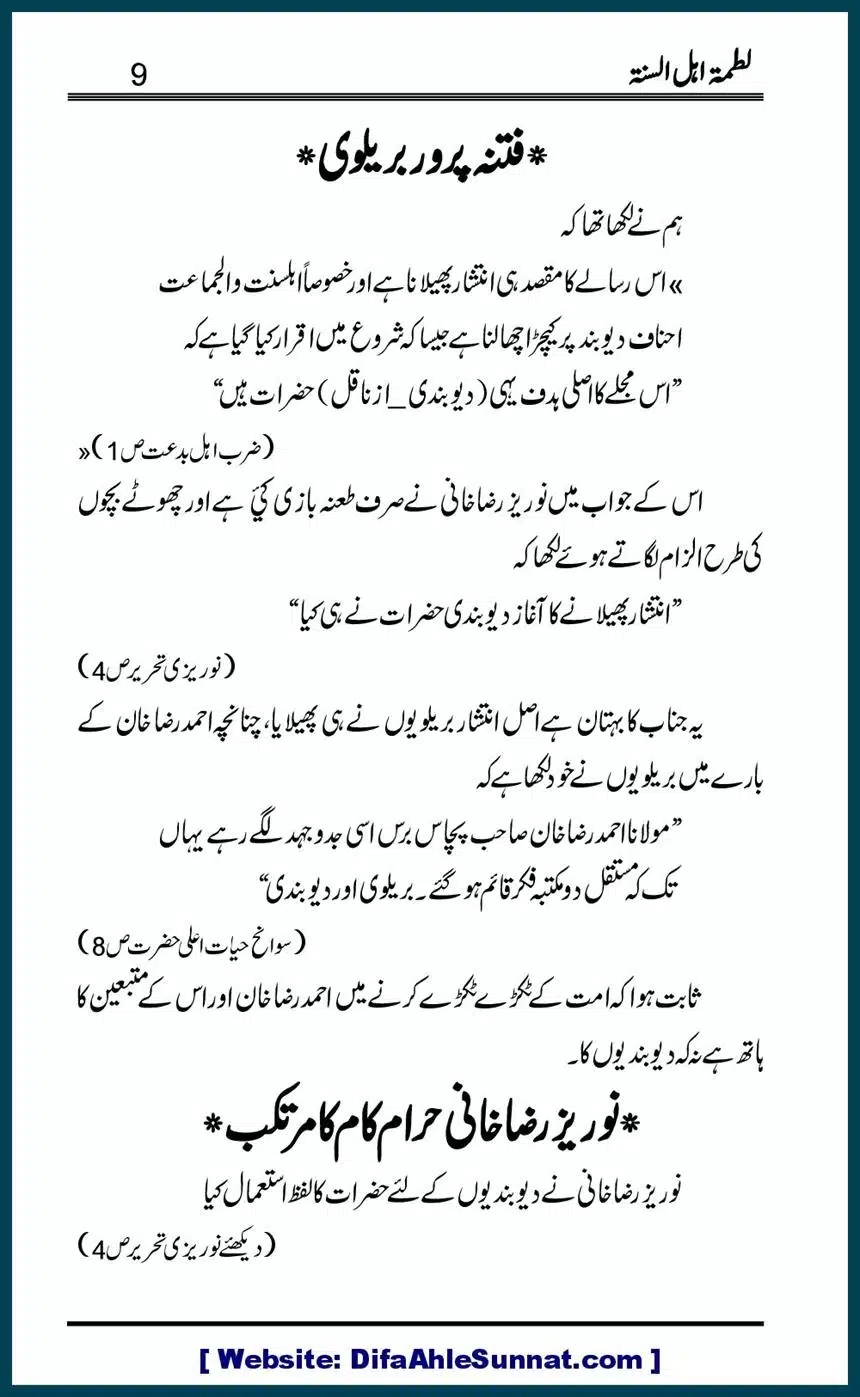 لطمۃ اہل السنۃ 9
*فتنہ پرور بریلوی*
ہم نے لکھا تھا کہ
»اس رسالے کا مقصد ہی انتشار پھیلانا ہے اور خصوصاً اہلسنت والجماعت
احناف دیوبند پر کیچڑ اچھالنا ہے جیسا کہ شروع میں اقرار کیا گیا ہے کہ
”اس مجلے کا اصلی ہدف یہی (دیوبندی_از ناقل) حضرات ہیں“
(ضرب اہل بدعت ص1)«
اس کے جواب میں نوریز رضاخانی نے صرف طعنہ بازی کئ ہے اور چھوٹے بچوں
کی طرح الزام لگاتے ہوئے لکھا کہ
”انتشار پھیلانے کا آغاز دیوبندی حضرات نے ہی کیا“
(نوریزی تحریر ص4)
یہ جناب کا بہتان ہے اصل انتشار بریلویوں نے ہی پھیلایا، چنانچہ احمد رضا خان کے
بارے میں بریلویوں نے خود لکھا ہے کہ
”مولانا احمد رضا خان صاحب پچاس برس اسی جدوجہد لگے رہے یہاں
تک کہ مستقل دو مکتبہ فکر قائم ہو گئے۔ بریلوی اور دیوبندی“
(سوانح حیات اعلی حضرت ص8)
ثابت ہوا کہ امت کے ٹکڑے ٹکڑے کرنے میں احمد رضا خان اور اس کے متبعین کا
ہاتھ ہے نہ کہ دیوبندیوں کا۔
*نوریز رضاخانی حرام کام کا مرتکب*
نوریز رضاخانی نے دیوبندیوں کے لئے حضرات کا لفظ استعمال کیا
(دیکھئے نوریزی تحریر ص4)
[ Website: DifaAhleSunnat.com ]